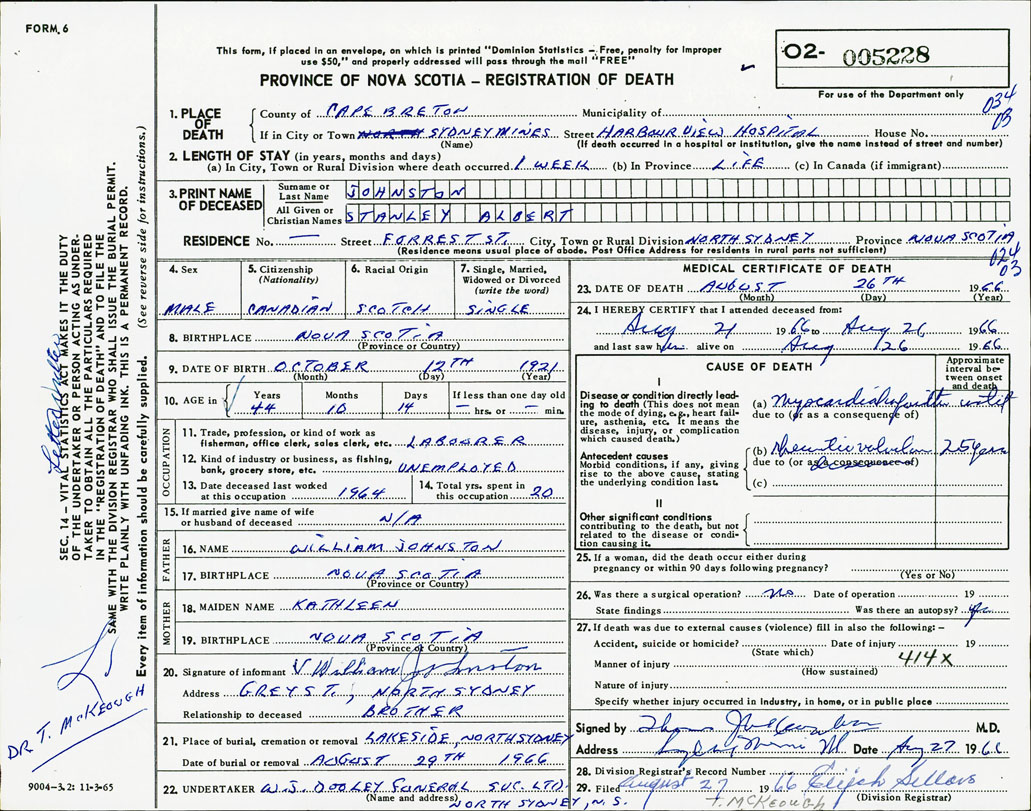 FORM 6
This form, if placed in an envelope, on which is printed "Dominion Statistics – Free, penalty for improper
use $50," and properly addressed will pass through the mail "FREE"
O2- 005228
PROVINCE OF NOVA SCOTIA – REGISTRATION OF DEATH
For use of the Department only
034
03
1. PLACE OF DEATH
County of CAPE BRETON Municipality of
If in City or Town NORTH SYDNEY MINES Street HARBOUR VIEW HOSPITAL House No.
(Name) (If death occurred in a hospital or institution, give the name instead of street and number)
2. LENGTH OF STAY (in years, months and days)
(a) In City, Town or Rural Division where death occurred 1 WEEK (b) In Province LIFE (c) In Canada (if immigrant)
3. PRINT NAME OF DECEASED
Surname or Last Name JOHNSTON
All Given or Christian Names STANLEY ALBERT
RESIDENCE No. — Street FORREST ST. City, Town or Rural Division NORTH SYDNEY Province NOVA SCOTIA
(Residence means usual place of abode. Post Office Address for residents in rural parts not sufficient)
024
03
4. Sex
MALE
5. Citizenship (Nationality)
CANADIAN
6. Racial Origin
SCOTCH
7. Single, Married, Widowed or Divorced (write the word)
SINGLE
8. BIRTHPLACE NOVA SCOTIA
(Province or Country)
9. DATE OF BIRTH OCTOBER 12TH 1921
(Month) (Day) (Year)
10. AGE in Years Months Days If less than one day old
44 10 14 – hrs. or – min.
OCCUPATION
11. Trade, profession, or kind of work as
fisherman, office clerk, sales clerk, etc. LABOURER
12. Kind of industry or business, as fishing,
bank, grocery store, etc. UNEMPLOYED
13. Date deceased last worked
at this occupation 1964
14. Total yrs. spent in
this occupation 20
15. If married give name of wife
or husband of deceased N/A
FATHER
16. NAME WILLIAM JOHNSTON
17. BIRTHPLACE NOVA SCOTIA
(Province or Country)
MOTHER
18. MAIDEN NAME KATHLEEN
19. BIRTHPLACE NOVA SCOTIA
(Province or Country)
20. Signature of informant V William Johnston
Address GREY ST., NORTH SYDNEY
Relationship to deceased BROTHER
21. Place of burial, cremation or removal LAKESIDE, NORTH SYDNEY
Date of burial or removal AUGUST 29TH 1966
22. UNDERTAKER W.J. DOOLEY FUNERAL SVC. LTD.
(Name and address) NORTH SYDNEY, N.S.
MEDICAL CERTIFICATE OF DEATH
23. DATE OF DEATH AUGUST 26TH 1966
(Month) (Day) (Year)
24. I HEREBY CERTIFY that I attended deceased from:
Aug 21 1966 to Aug 26 1966
and last saw him alive on Aug 26 1966
CAUSE OF DEATH
Approximate interval between onset and death
I
Disease or condition directly leading to death (This does not mean
the mode of dying, e.g., heart failure, asthenia, etc. It means the
disease, injury, or complication
which caused death.)
(a) Myocardial
due to (or as a consequence of)
Antecedent causes
Morbid conditions, if any, giving
rise to the above cause, stating
the underlying condition last.
(b) valvular 25 years
due to (or as a consequence of)
(c)
II
Other significant conditions
contributing to the death, but not
related to the disease or condition causing it.
25. If a woman, did the death occur either during
pregnancy or within 90 days following pregnancy?
(Yes or No)
26. Was there a surgical operation? No Date of operation 19
State findings Was there an autopsy?
27. If death was due to external causes (violence) fill in also the following: –
Accident, suicide or homicide? Date of injury 19
(State which) 414X
Manner of injury
(How sustained)
Nature of injury
Specify whether injury occurred in Industry, in home, or in public place
Signed by M.D.
Address Sydney Mines Date Aug 27 1966
28. Division Registrar's Record Number
29. Filed August 27 1966 Elijah Sellars
T. MCKEOUGH (Division Registrar)
SEC. 14 – VITAL STATISTICS ACT MAKES IT THE DUTY
OF THE UNDERTAKER OR PERSON ACTING AS UNDERTAKER TO OBTAIN ALL THE PARTICULARS REQUIRED
IN THE "REGISTRATION OF DEATH" AND TO FILE THE
SAME WITH THE DIVISION REGISTRAR WHO SHALL ISSUE THE BURIAL PERMIT.
WRITE PLAINLY WITH UNFADING INK. THIS IS A PERMANENT RECORD.
Every item of information should be carefully supplied. (See reverse side for instructions.)
DR T. McKEOUGH
9004-3.2: 11-3-65